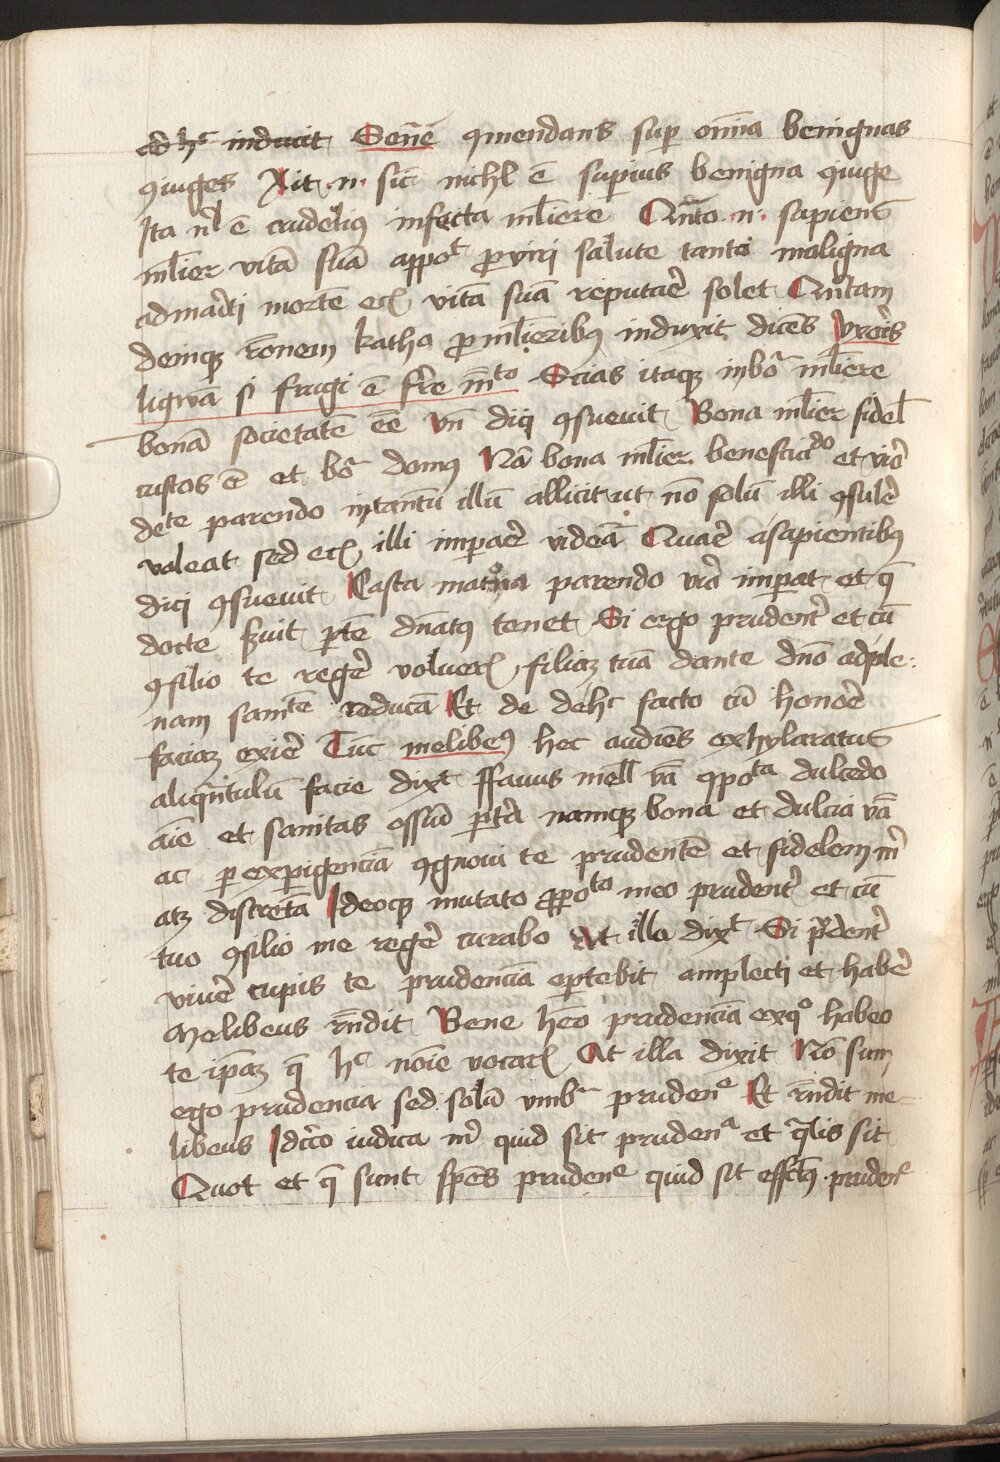 ad hc induxit Senēc ꝯmendans suꝑ omīa benignas
ꝯiuges Ait .n. sic̄ nichl ē suꝑius benigna ꝯiuge
Ita nl ē crudelius infesta ml̄iere Qn̄to .n. sapiens
ml̄ier vitā suā appot ꝓ viri salute tanto maligna
ad mariti mortē ecꝫ vitā suā reputare solet Quītam
deinqꝫ rōnem katho ꝓ ml̄ieribus induxit dicēs Uxoris
ligwā si frugi ē fr̄e mto Scias itaqꝫ in boa ml̄iere
bonā societatē eē Vn̄ dici ꝯsuevit Bona ml̄ier fidel
custos ē et boa domus Nā bona ml̄ier beneficiādo et viro
decte parendo intantū illū allicit ut nō solū illi ꝯsulē
valeat sed ecꝫ illi impare videat̄ Quare a sapientibus
dici ꝯsuevit Casta matrona parendo viro imperat et q̄
docte ẜuit ꝑtē dn̄atus tenet Si ergo prudenter et cū
ꝯsilio te regere volueris filiaꝫ tuā dante dn̄o ad ple
nam sanitatē reducā Et de dehc facto cū honore
faciaꝫ exire Tūc melibeus hec audiēs exhylaratus
aliqn̄tulū facie dixt ffauus mell vā ꝯpota dulcedo
aīe et sanitas ossiū ꝑtr̄a namqꝫ bona et dulcia vā
ac ꝑ experigenciā ꝯgnoui te prudentē et fidelem m̄
atꝫ discretā Ideoqꝫ mutato ꝓpoto meo prudenter et cū
tuo ꝯsilio me regere curabo At illa dixt Si prudenter
viuere cupis te prudenciā oportebit amplecti et habere
Melibeus rn̄dit Bene heo prudenciā ex quo habeo
te ip̄aꝫ q̄ hc noīe vocaris At illa dixit Nō sum
ergo prudencia sed solū vmbra prudene Et rn̄dit me
libeus Idcirco indica m̄ quid sit prudena et qualis sit
Quot et q̄ sunt spēs prudene quid sit effectus prudene